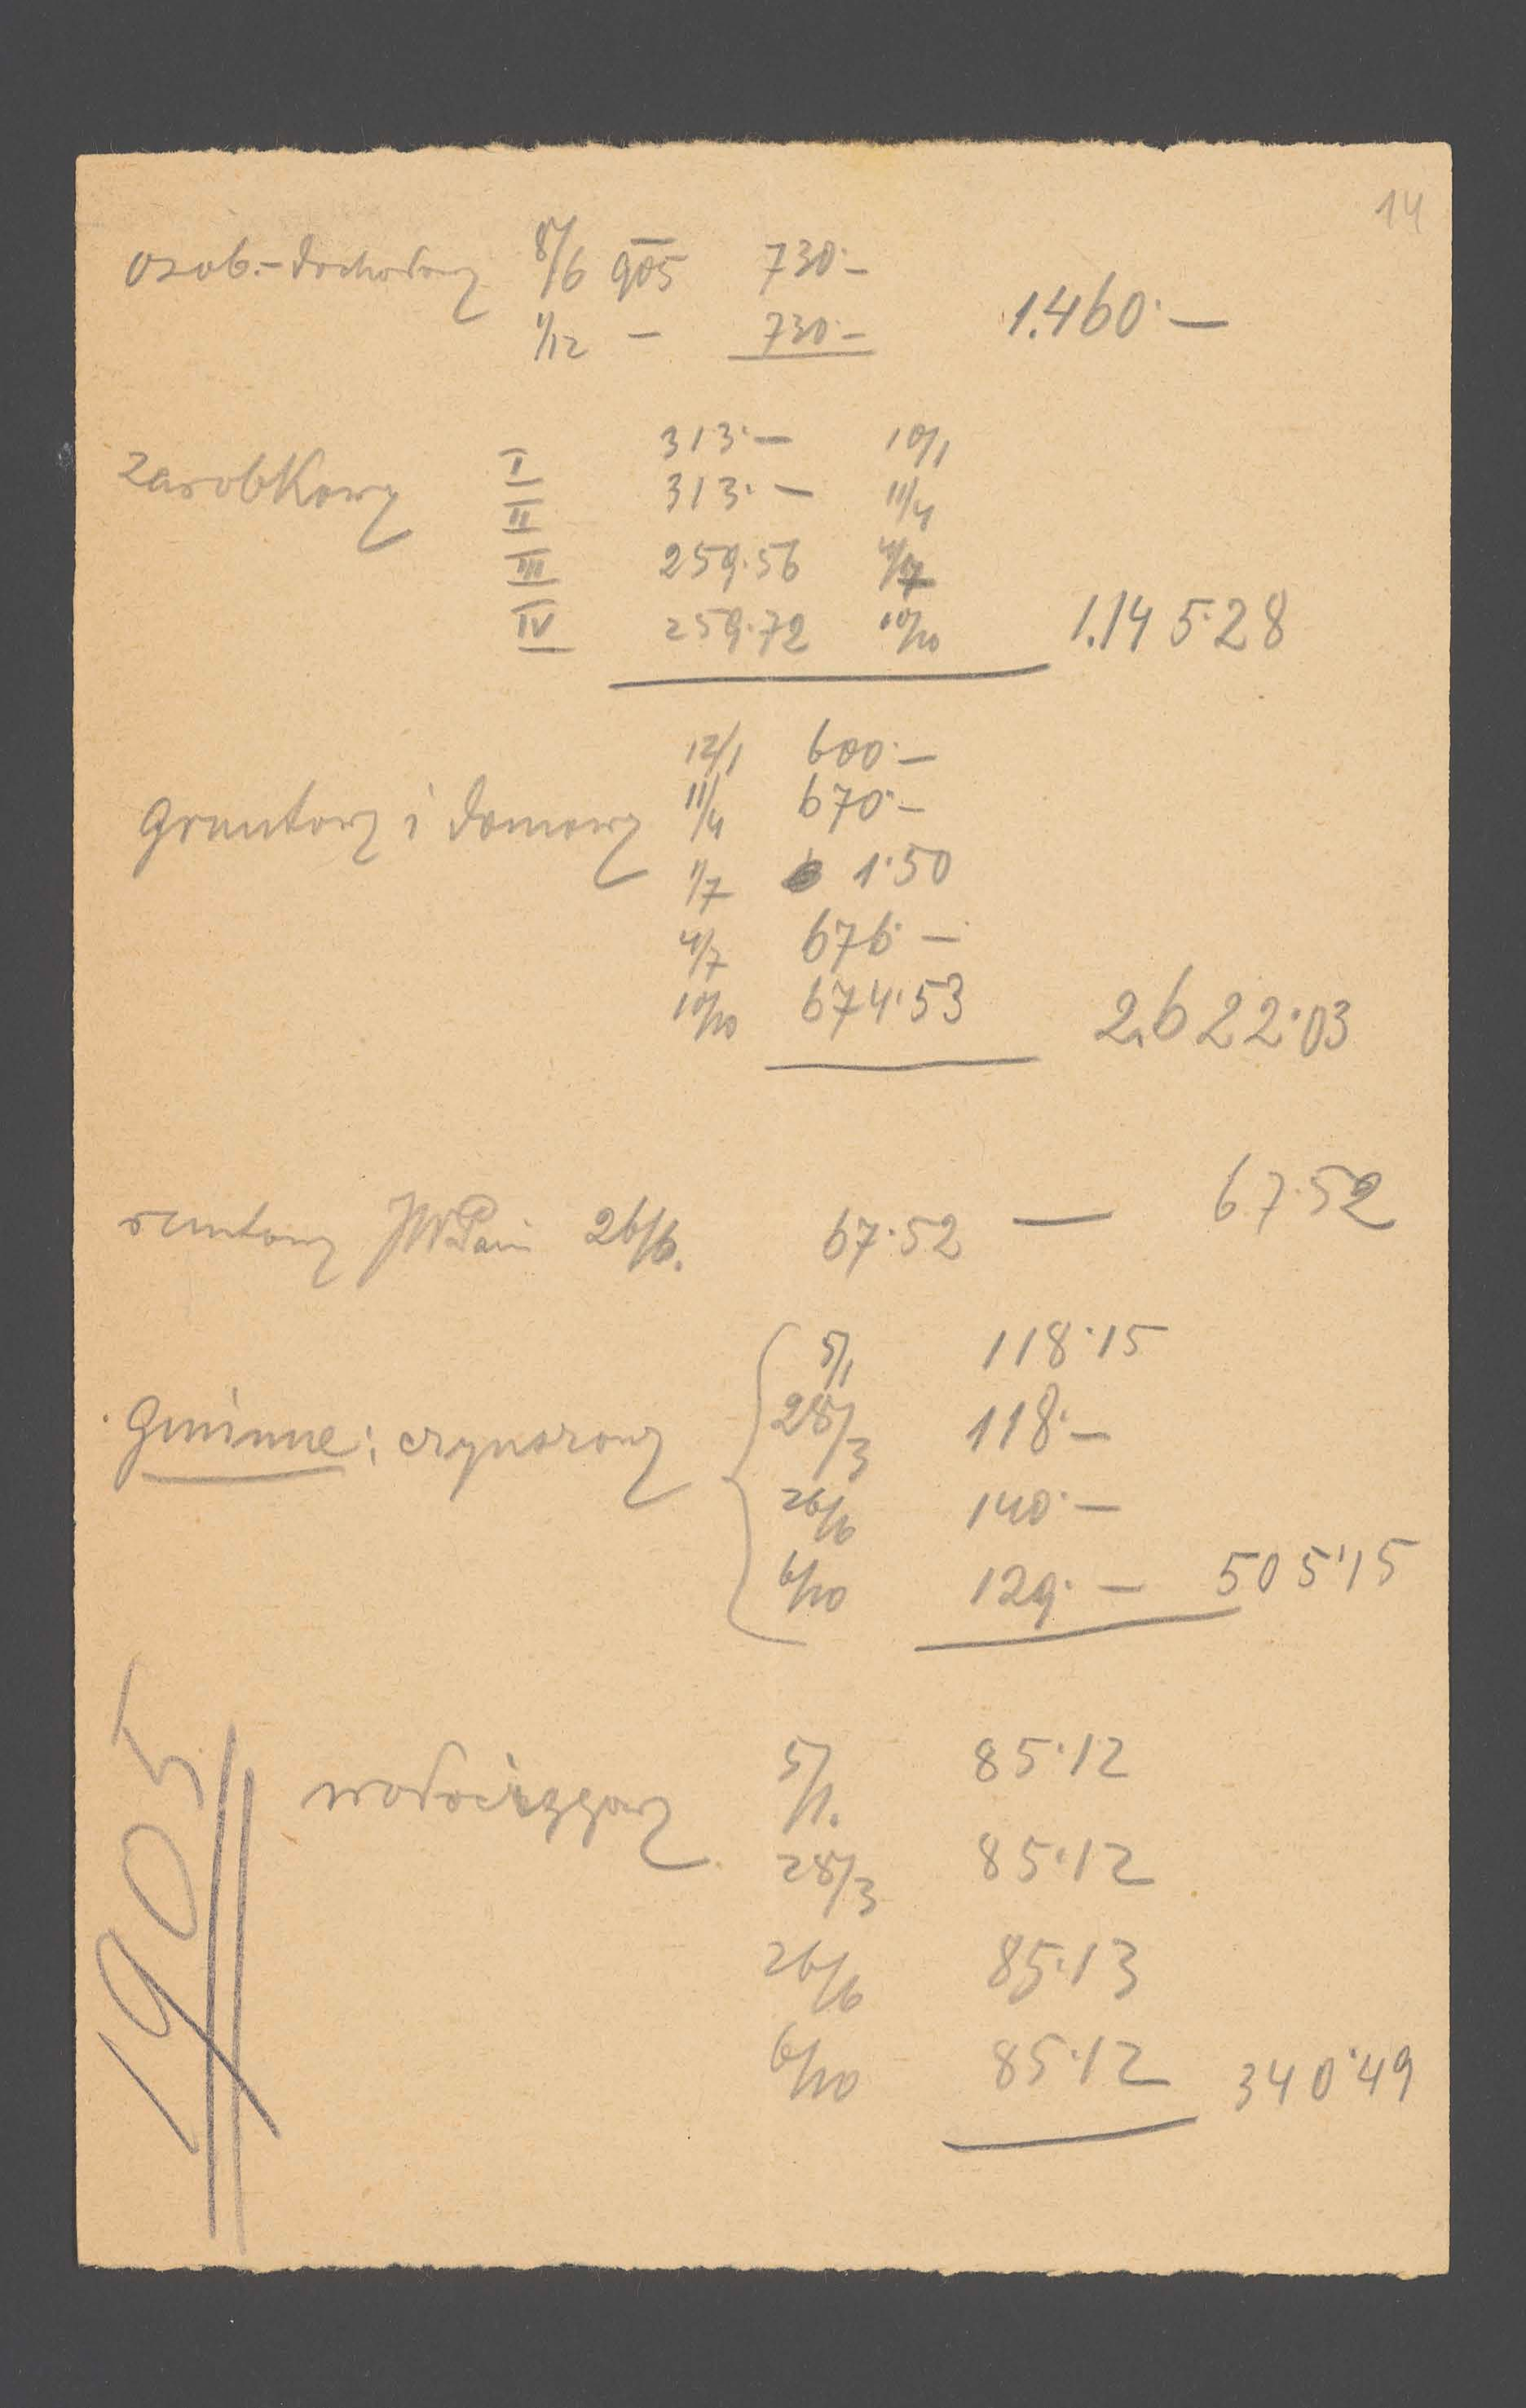 14
osob.-dochodowy 8/6 905 730·–
1/12 – 730·– 1.460·–
zarobkowy I 313·– 10/1
II 313·– 11/4
III 259·56 4/7
IV 259·72 10/10 1.145·28
12/1 600·–
gruntowy i domowy 11/4 670·–
1/7 1·50
4/7 676·–
10/10 674·53 2.622·03
rentowy JWPani 26/6. 67·52 — 67·52
5/1 118·15
Gminne: czynszowy 28/3 118·–
26/6 140·–
6/10 129·– 505·15
1905
wodociągowy 5/1. 85·12
28/3 85·12
26/6 85·13
6/10 85·12 340·49